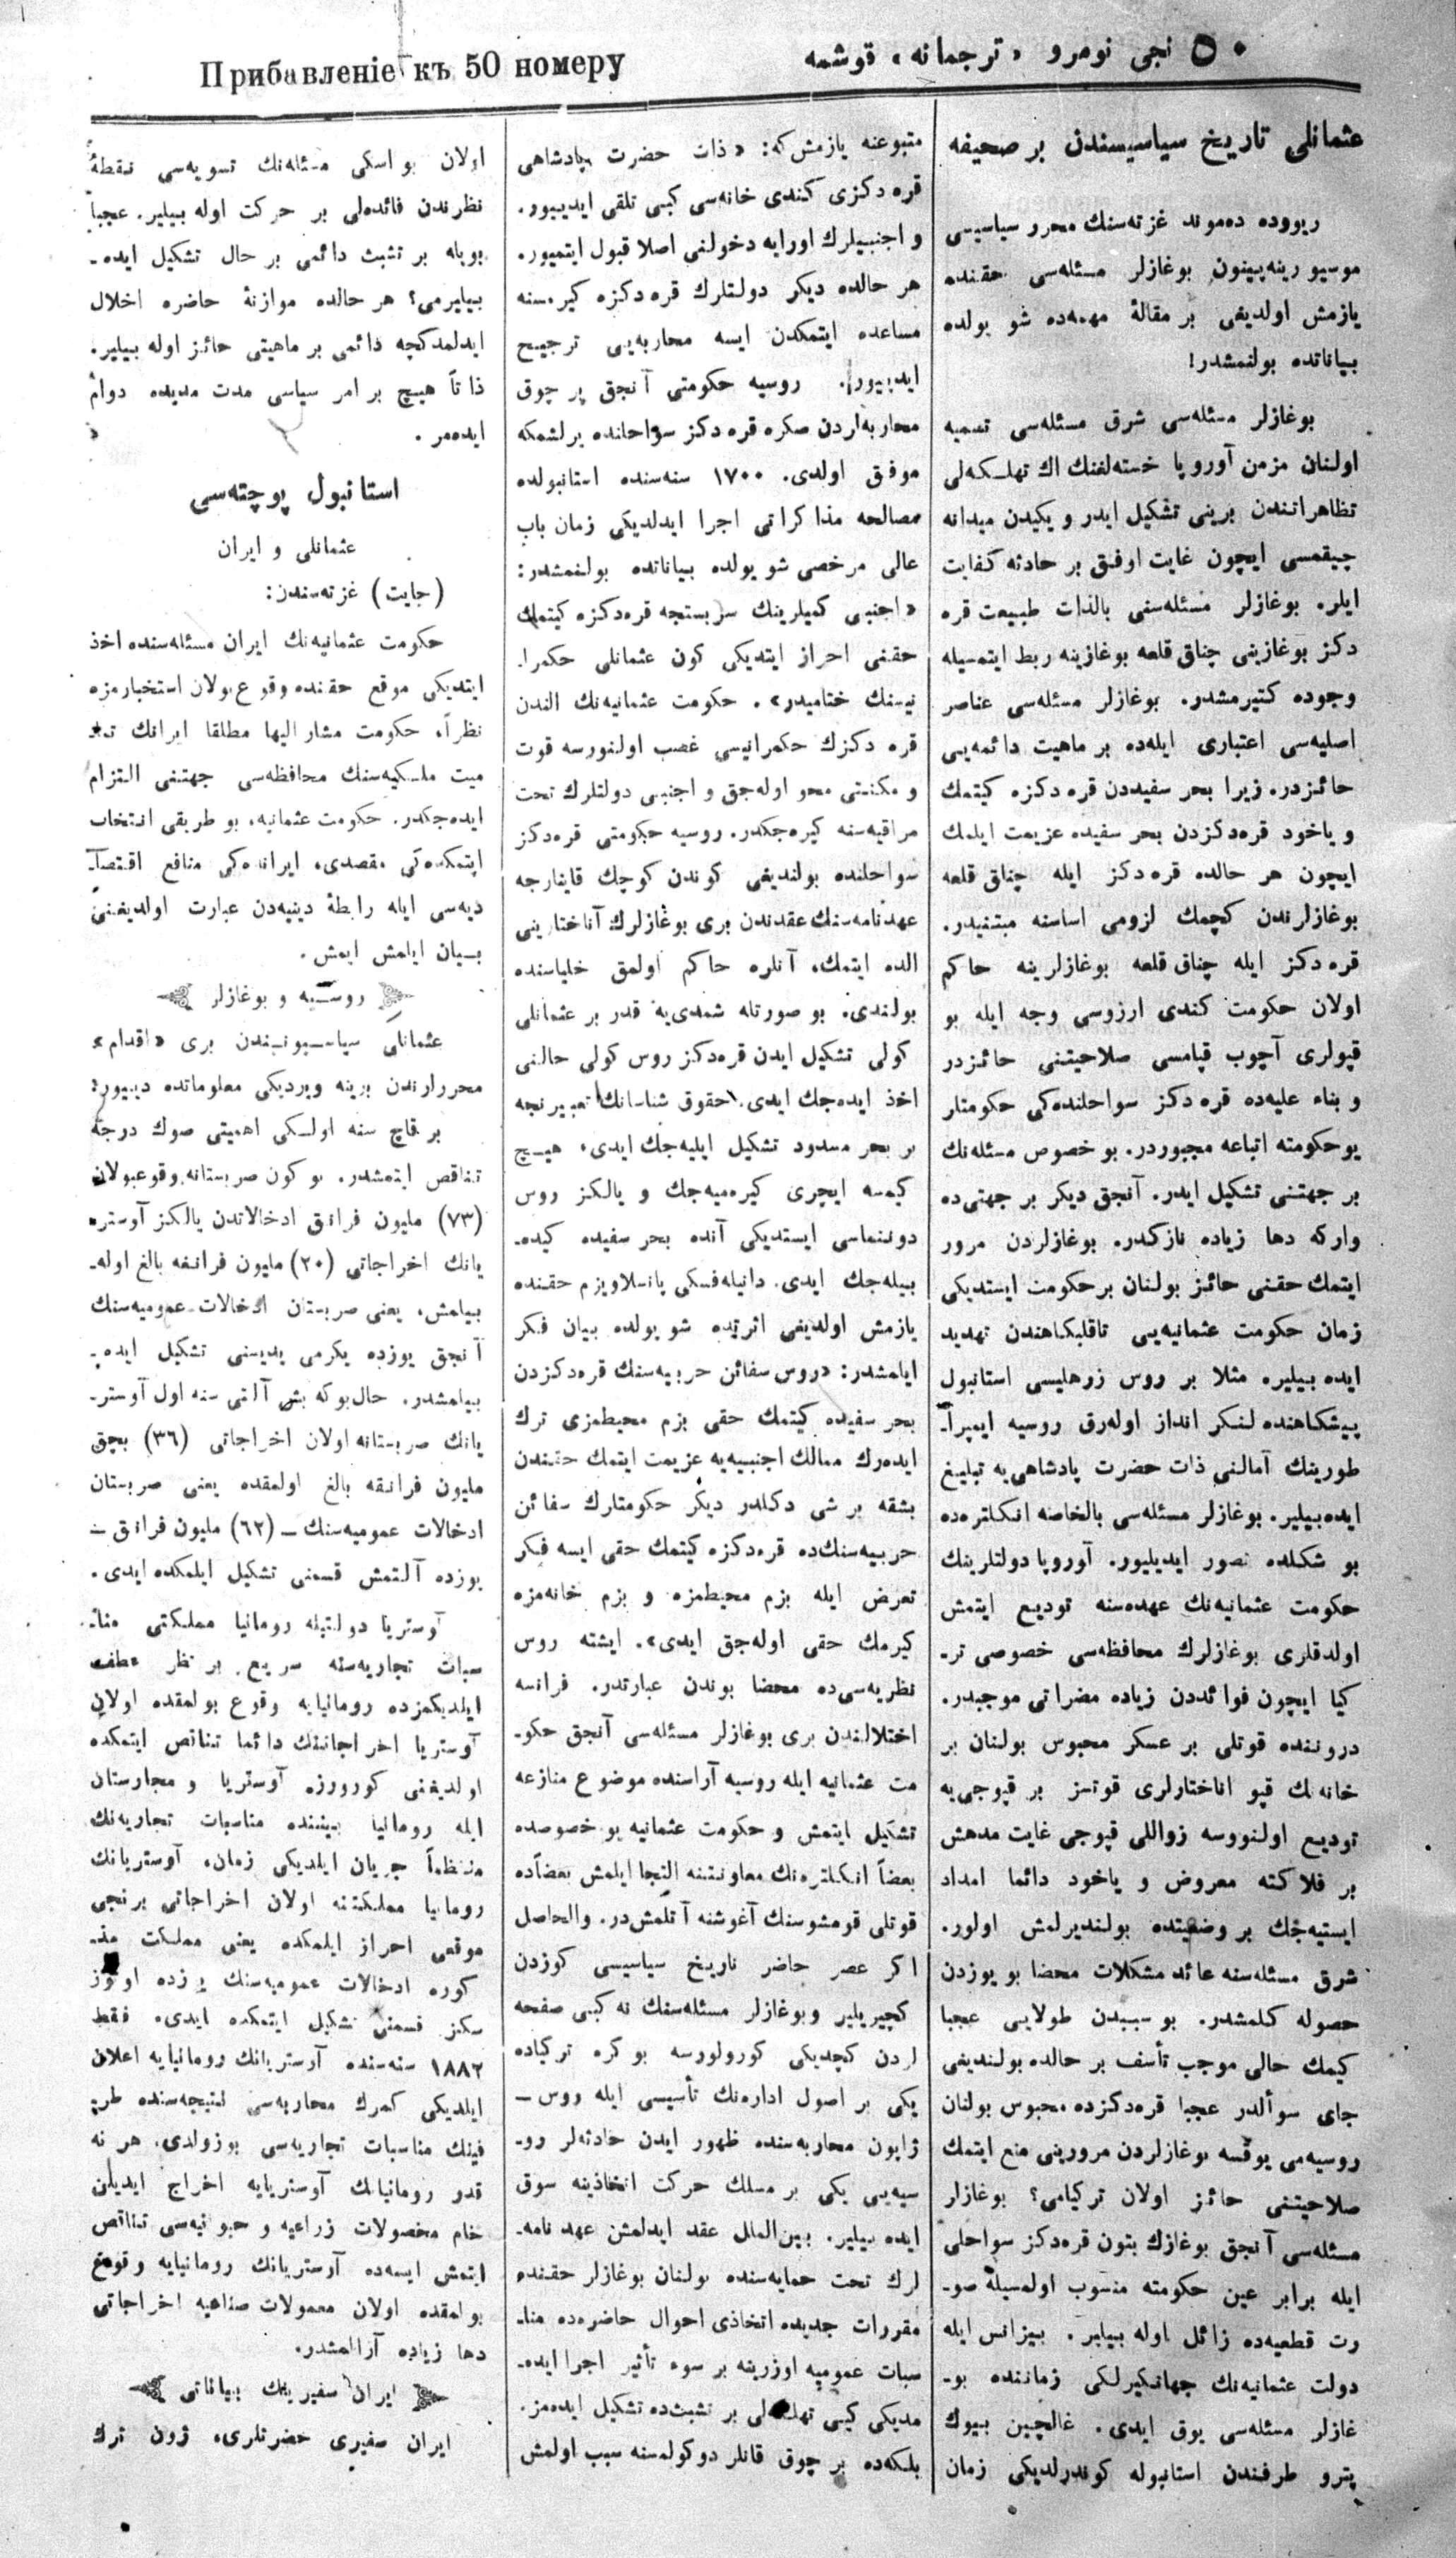 Прибавленіе къ 50 номеру
۵۰ نجی نومرو «ترجمانه» قوشمه
عثمانلی تاریخ سیاسیسندن بر صحیفه
ریووده ده‌موند غزته‌سنك محرر سیاسیسی
موسیو رینه‌پینون بوغازلر مسئله‌سی حقنده
یازمش اولدیغی بر مقالهٔ مهمه‌ده شو یولده
بیاناتده بولنمشدر!
بوغازلر مسئله‌سی شرق مسئله‌سی تسمیه
اولنان مزمن آوروپا خسته‌لغنك اك تهلكه‌لی
تظاهراتندن برینی تشكیل ایدر و یكیدن میدانه
چیقمسی ایچون غایت اوفق بر حادثه كفایت
ایلر. بوغازلر مسئله‌سنی بالذات طبیعت قره
دكز بوغازینی چناق قلعه بوغازینه ربط ایتمسیله
وجوده كتیرمشدر. بوغازلر مسئله‌سی عناصر
اصلیه‌سی اعتباری ایله‌ده بر ماهیت دائمه‌یی
حائزدر. زیرا بحر سفیددن قره دكزه كیتمك
و یاخود قره‌دكزدن بحر سفیده عزیمت ایلمك
ایچون هر حالده قره دكز ایله چناق قلعه
بوغازلرندن كچمك لزومی اساسنه مبتنیدر.
قره دكز ایله چناق قلعه بوغازلرینه حاكم
اولان حكومت كندی ارزوسی وجه ایله بو
قپولری آچوب قپامسی صلاحیتنی حائزدر
و بناء علیه‌ده قره دكز سواحلنده‌كی حكومتلر
بوحكومته اتباعه مجبوردر. بو خصوص مسئله‌نك
بر جهتنی تشكیل ایدر. آنجق دیكر بر جهتی‌ده
واركه دها زیاده نازكدر. بوغازلردن مرور
ایتمك حقنی حائز بولنان برحكومت ایستدیكی
زمان حكومت عثمانیه‌یی تاقلبكاهندن تهدید
ایده بیلیر. مثلا بر روس زرهلیسی استانبول
پیشكاهنده لنكر انداز اوله‌رق روسیه ایمپرا-
طورینك آمالنی ذات حضرت پادشاهی‌یه تبلیغ
ایده‌بیلیر. بوغازلر مسئله‌سی بالخاصه انكلتره‌ده
بو شكلده تصور ایدیلیور. آوروپا دولتلرینك
حكومت عثمانیه‌نك عهده‌سنه تودیع ایتمش
اولدقلری بوغازلرك محافظه‌سی خصوصی تر-
كیا ایچون فوائددن زیاده مضراتی موجبدر.
دروننده قوتلی بر عسكر محبوس بولنان بر
خانه‌نك قپو اناختارلری قوتسز بر قپوجی‌یه
تودیع اولنورسه زواللی قپوجی غایت مدهش
بر فلاكته معروض و یاخود دائما امداد
ایستیه‌جك بر وضعیتده بولندیرلمش اولور.
شرق مسئله‌سنه عائد مشكلات محضا بو یوزدن
حصوله كلمشدر. بو سببدن طولایی عجبا
كیمك حالی موجب تأسف بر حالده بولندیغی
جای سوألدر عجبا قره‌دكزده محبوس بولنان
روسیه‌می یوقسه بوغازلردن مرورینی منع ایتمك
صلاحیتنی حائز اولان تركیامی؟ بوغازلر
مسئله‌سی آنجق بوغازك بتون قره‌دكز سواحلی
ایله برابر عین حكومته منسوب اولمسیله صو-
رت قطعیه‌ده زائل اوله بیلیر. بیزانس ایله
دولت عثمانیه‌نك جهانكیرلكی زماننده بو-
غازلر مسئله‌سی یوق ایدی. غالچین بیوك
پترو طرفندن استانبوله كوندرلدیكی زمان
متبوعنه یازمش‌كه: «ذات حضرت پادشاهی
قره دكزی كندی خانه‌سی كبی تلقی ایدییور.
و اجنبیلرك اورایه دخولنی اصلا قبول ایتمیور.
هر حالده دیكر دولتلرك قره دكزه كیرمسنه
مساعده ایتمكدن ایسه محاربه‌یی ترجیح
ایدییور. روسیه حكومتی آنجق بر چوق
محاربه‌لردن صكره قره دكز سواحلنده یرلشمكه
موفق اولدی. ۱۷۰۰ سنه‌سنده استانبولده
مصالحه مذاكراتی اجرا ایدلدیكی زمان باب
عالی مرخصی شو یولده بیاناتده بولنمشدر:
«اجنبی كمیلرینك سربستجه قره‌دكزه كیتمك
حقنی احراز ایتدیكی كون عثمانلی حكمرا-
نیسنك ختامیدر». حكومت عثمانیه‌نك الندن
قره دكزك حكمرانیسی غصب اولنورسه قوت
و مكنتی محو اوله‌جق و اجنبی دولتلرك تحت
مراقبه‌سنه كیره‌جكدر. روسیه حكومتی قره‌دكز
سواحلنده بولندیغی كوندن كوچك قاینارجه
عهدنامه‌سنك عقدندن بری بوغازلرك آناختارینی
الده ایتمك، آنلره حاكم اولمق خلیاسنده
بولندی. بو صورتله شمدی‌یه قدر بر عثمانلی
كولی تشكیل ایدن قره‌دكز روس كولی حالنی
اخذ ایده‌جك ایدی. حقوق شناسانك تعبیرنجه
بر بحر مسدود تشكیل ایلیه‌جك ایدی، هیچ
كیمسه ایچری كیره‌میه‌جك و یالكز روس
دوننماسی ایستدیكی آنده بحر سفیده كیده-
بیله‌جك ایدی. دانیله‌فسكی پانسلاویزم حقنده
یازمش اولدیغی اثرنده شو یولده بیان فكر
ایلمشدر: «روس سفائن حربیه‌سنك قره‌دكزدن
بحر سفیده كیتمك حقی بزم محیطمزی ترك
ایده‌رك ممالك اجنبیه‌یه عزیمت ایتمك حقندن
بشقه بر شی دكلدر دیكر حكومتلرك سفائن
حربیه‌سنك‌ده قره‌دكزه كیتمك حقی ایسه فكر
تعرض ایله بزم محیطمزه و بزم خانه‌مزه
كیرمك حقی اوله‌جق ایدی». ایشته روس
نظریه‌سی‌ده محضا بوندن عبارتدر. فرانسه
اختلالندن بری بوغازلر مسئله‌سی آنجق حكو-
مت عثمانیه ایله روسیه آراسنده موضوع منازعه
تشكیل ایتمش و حكومت عثمانیه بو خصوصده
بعضاً انكلتره‌نك معاونتنه التجا ایلمش بعضاًده
قوتلی قومشوسنك آغوشنه آتلمش‌در. والحاصل
اكر عصر حاضر تاریخ سیاسیسی كوزدن
كچیریلیر و بوغازلر مسئله‌سنك نه كبی صفحه
لردن كچدیكی كورولورسه بو كره تركیاده
یكی بر اصول اداره‌نك تأسیسی ایله روس ـ
ژاپون محاربه‌سنده ظهور ایدن حادثه‌لر رو-
سیه‌یی یكی بر مسلك حركت اتخاذینه سوق
ایده بیلیر. بین‌الملل عقد ایدلمش عهد نامه-
لرك تحت حمایه‌سنده بولنان بوغازلر حقنده
مقررات جدیده اتخاذی احوال حاضره‌ده منا-
سبات عمومیه اوزرینه بر سوء تأثیر اجرا ایده-
مدیكی كبی تهلكه‌لی بر تشبث‌ده تشكیل ایده‌مز.
بلكه‌ده بر چوق قانلر دوكولمسنه سبب اولمش
اولان بو اسكی مسئله‌نك تسویه‌سی نقطهٔ
نظرندن فائده‌لی بر حركت اوله بیلیر. عجباً
بویله بر تشبث دائمی بر حال تشكیل ایده-
بیلیرمی؟ هر حالده موازنهٔ حاضره اخلال
ایدلمدكچه دائمی بر ماهیتی حائز اوله بیلیر.
ذاتاً هیچ بر امر سیاسی مدت مدیده دوام
ایده‌مز.
استانبول پوچته‌سی
عثمانلی و ایران
(جایت) غزته‌سندن:
حكومت عثمانیه‌نك ایران مسئله‌سنده اخذ
ایتدیكی موقع حقنده وقوع بولان استخبارمزه
نظراً، حكومت مشار الیها مطلقا ایرانك تما-
میت ملكیه‌سنك محافظه‌سی جهتنی التزام
ایده‌جكدر. حكومت عثمانیه، بو طریقی انتخاب
ایتمكده‌كی مقصدی، ایرانده‌كی منافع اقتصا-
دیه‌سی ایله رابطهٔ دینیه‌دن عبارت اولدیغنی
بیان ایلمش ایمش.
روسیه و بوغازلر
عثمانلی سیاسیوننندن بری «اقدام»
محررلرندن برینه ویردیكی معلوماتده دییور:
بر قاچ سنه اولكی اهمیتی صوك درجه
تناقص ایتمشدر. بو كون صربستانه وقوعبولان
(۷۳) ملیون فرانق ادخالاتدن یالكز آوستر-
یانك اخراجاتی (۲۰) ملیون فرانقه بالغ اوله-
بیلمش، یعنی صربستان ادخالات عمومیه‌سنك
آنجق یوزده یكرمی یدیسنی تشكیل ایده-
بیلمشدر. حال‌بوكه بش آلتی سنه اول آوستر-
یانك صربستانه اولان اخراجاتی (۳۶) بچق
ملیون فرانقه بالغ اولمقده یعنی صربستان
ادخالات عمومیه‌سنك ـ (۶۲) ملیون فرانق ـ
یوزده آلتمش قسمنی تشكیل ایلمكده ایدی.
آوستریا دولتیله رومانیا مملكتی منا-
سبات تجاریه‌سنه سریع بر نظر عطف
ایلدیكمزده رومانیایه وقوع بولمقده اولان
آوستریا اخراجاتنك دائما تناقص ایتمكده
اولدیغنی كورورز. آوستریا و مجارستان
ایله رومانیا بیننده مناسبات تجاریه‌نك
منتظماً جریان ایلدیكی زمان، آوستریانك
رومانیا مملكتنه اولان اخراجاتی برنجی
موقعی احراز ایلمكده یعنی مملكت مذ-
كوره ادخالات عمومیه‌سنك یوزده اوتوز
سكز قسمنی تشكیل ایتمكده ایدی، فقط
۱۸۸۲ سنه‌سنده آوستریانك رومانیایه اعلان
ایلدیكی كمرك محاربه‌سی نتیجه‌سنده طر-
فینك مناسبات تجاریه‌سی بوزولدی. هر نه
قدر رومانیانك آوستریایه اخراج ایدیلن
خام محصولات زراعیه و حیوانیه‌سی تناقص
ایتمش ایسه‌ده آوستریانك رومانیایه وقوع
بولمقده اولان معمولات صناعیه اخراجاتی
دها زیاده آزالمشدر.
ایران سفیرینك بیاناتی
ایران سفیری حضرتلری، ژون ترك